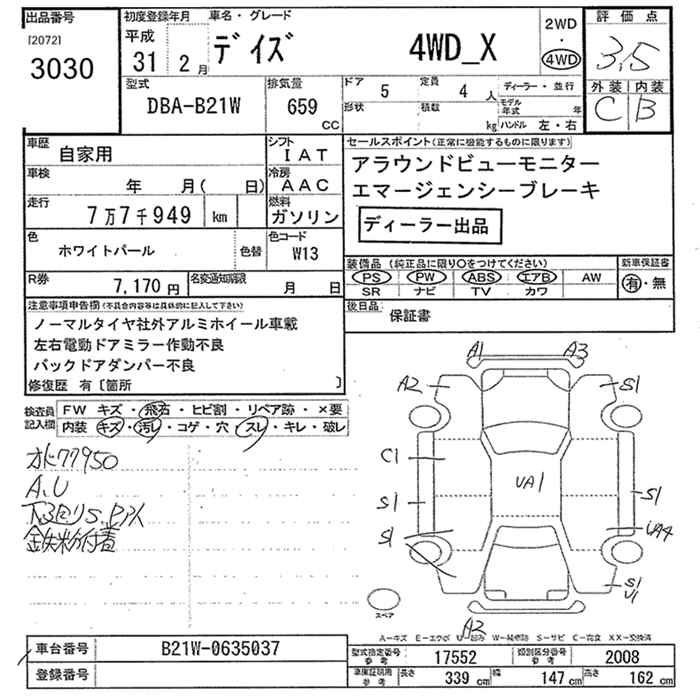 出品番号
[2072]
3030
初度登録年月 車名・グレード
平成
31 2月 デイズ 4WD_X
2WD
・
4WD
評価点
3.5
外装 内装
C B
型式 排気量 ドア 定員 ディーラー・並行
DBA-B21W 659 CC 5 4人
形状 積載 kg モデル年式 年
ハンドル 左・右
車歴 自家用 シフト IAT
車検 年 月( 日) 冷房 AAC
走行 7万7千949 km 燃料 ガソリン
色 ホワイトパール 色替 色コード W13
R券 7,170円 名変通知期限 月 日
セールスポイント(正常に機能するものに限ります)
アラウンドビューモニター
エマージェンシーブレーキ
ディーラー出品
装備品(純正品に限り○をつけてください) 新車保証書
PS PW ABS エアB AW 有・無
SR ナビ TV カワ
後日品 保証書
注意事項申告欄(不具合内容等は具体的に記入して下さい)
ノーマルタイヤ社外アルミホイール車載
左右電動ドアミラー作動不良
バックドアダンパー不良
修復歴 有〔箇所 〕
検査員記入欄 FW キズ・飛石・ヒビ割・リペア跡・×要
内装 キズ・汚レ・コゲ・穴・スレ・キレ・破レ
77950
A.U
下回りS.
鉄粉付着
A1 A3
A2 S1
C1
UA1
S1 S1
S1 UA4
S1
U1
スペア
A2
A-キズ E-エクボ U-凹み W-補修跡 S-サビ C-腐食 XX-交換済
車台番号 B21W-0635037
登録番号
型式指定番号参考 17552 類別区分番号参考 2008
車庫証明用参考 長さ 339 cm 幅 147 cm 高さ 162 cm